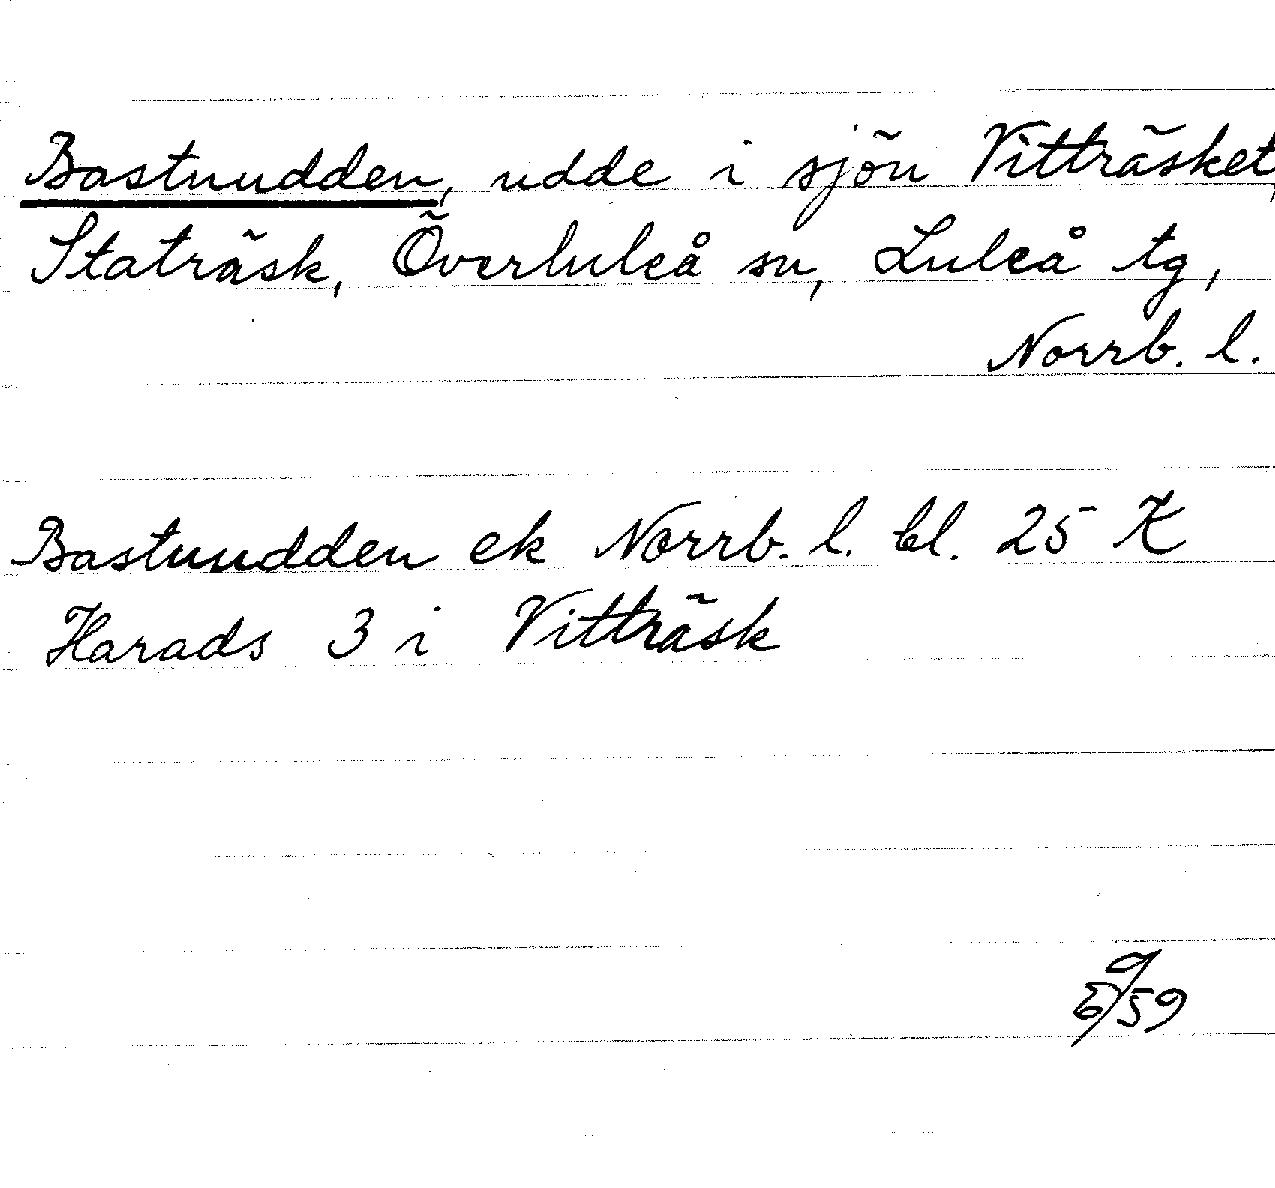 Bastnudden, udde i sjön Vitträsket,
Staträsk, Överluleå sn, Luleå tg,
Norrb. l.
Bastnudden ek Norrb. l. bl. 25 K
Harads 3 i Vitträsk
59